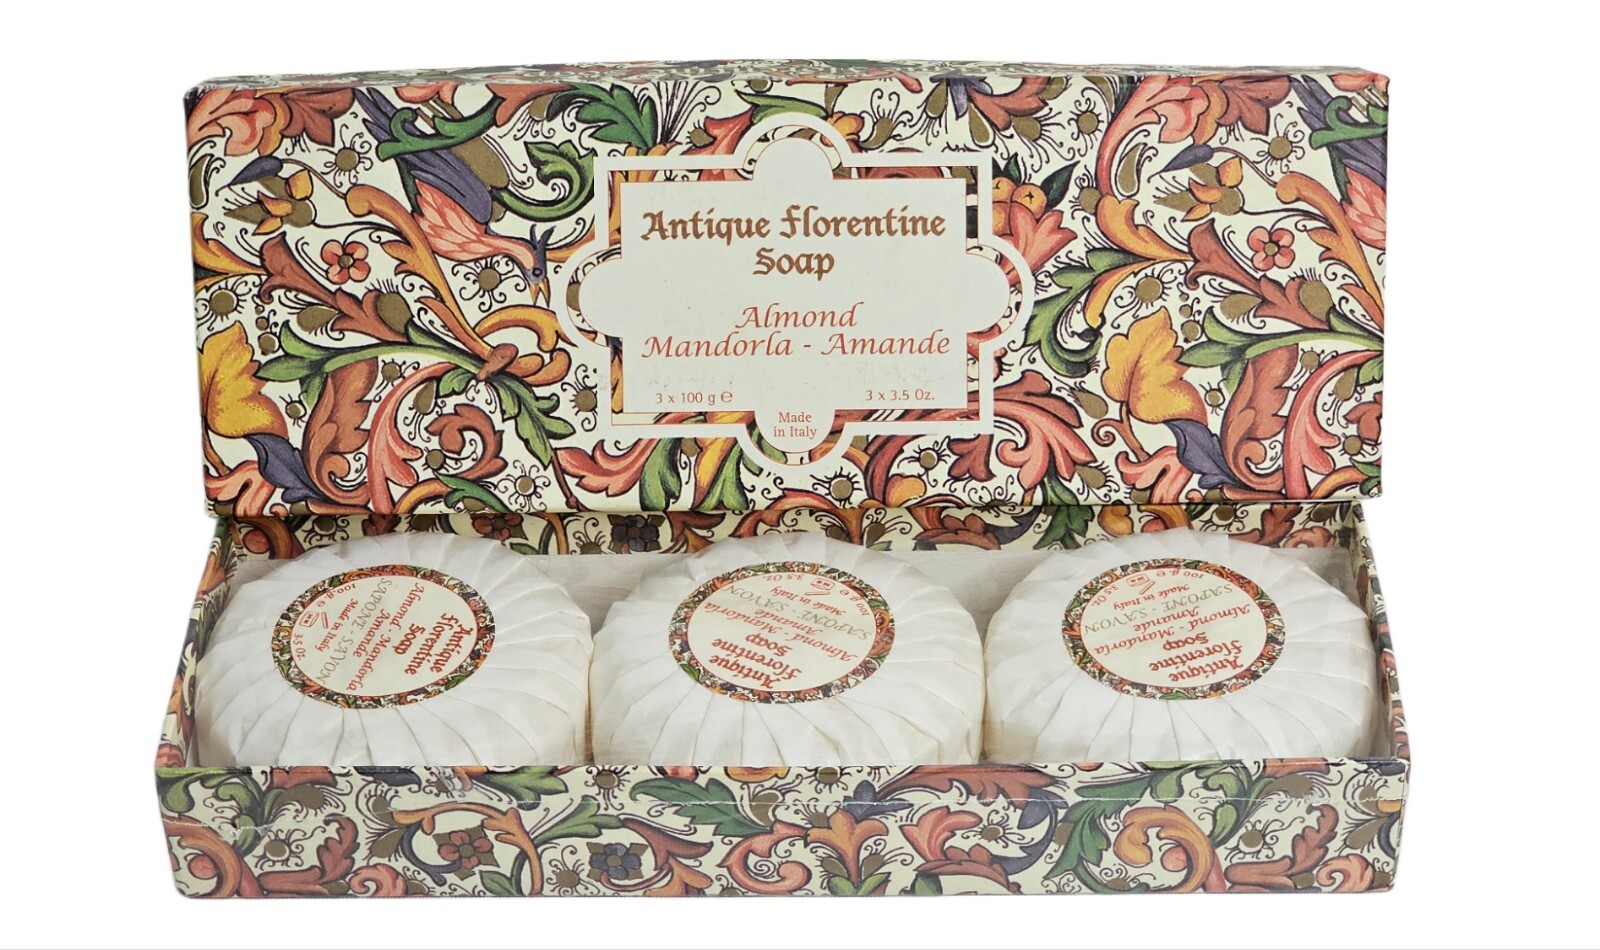 Antique Florentine
Soap
Almond
Mandorla - Amande
3 x 100 g ℮
3 x 3.5 Oz.
Made
in Italy
Antique
Florentine
Soap
Almond - Mandorla
Amande
SAPONE - SAVON
Made in Italy
100 g ℮
3.5 Oz.
Antique
Florentine
Soap
Almond - Mandorla
Amande
SAPONE - SAVON
Made in Italy
100 g ℮
3.5 Oz.
Antique
Florentine
Soap
Almond - Mandorla
Amande
SAPONE - SAVON
Made in Italy
100 g ℮
3.5 Oz.